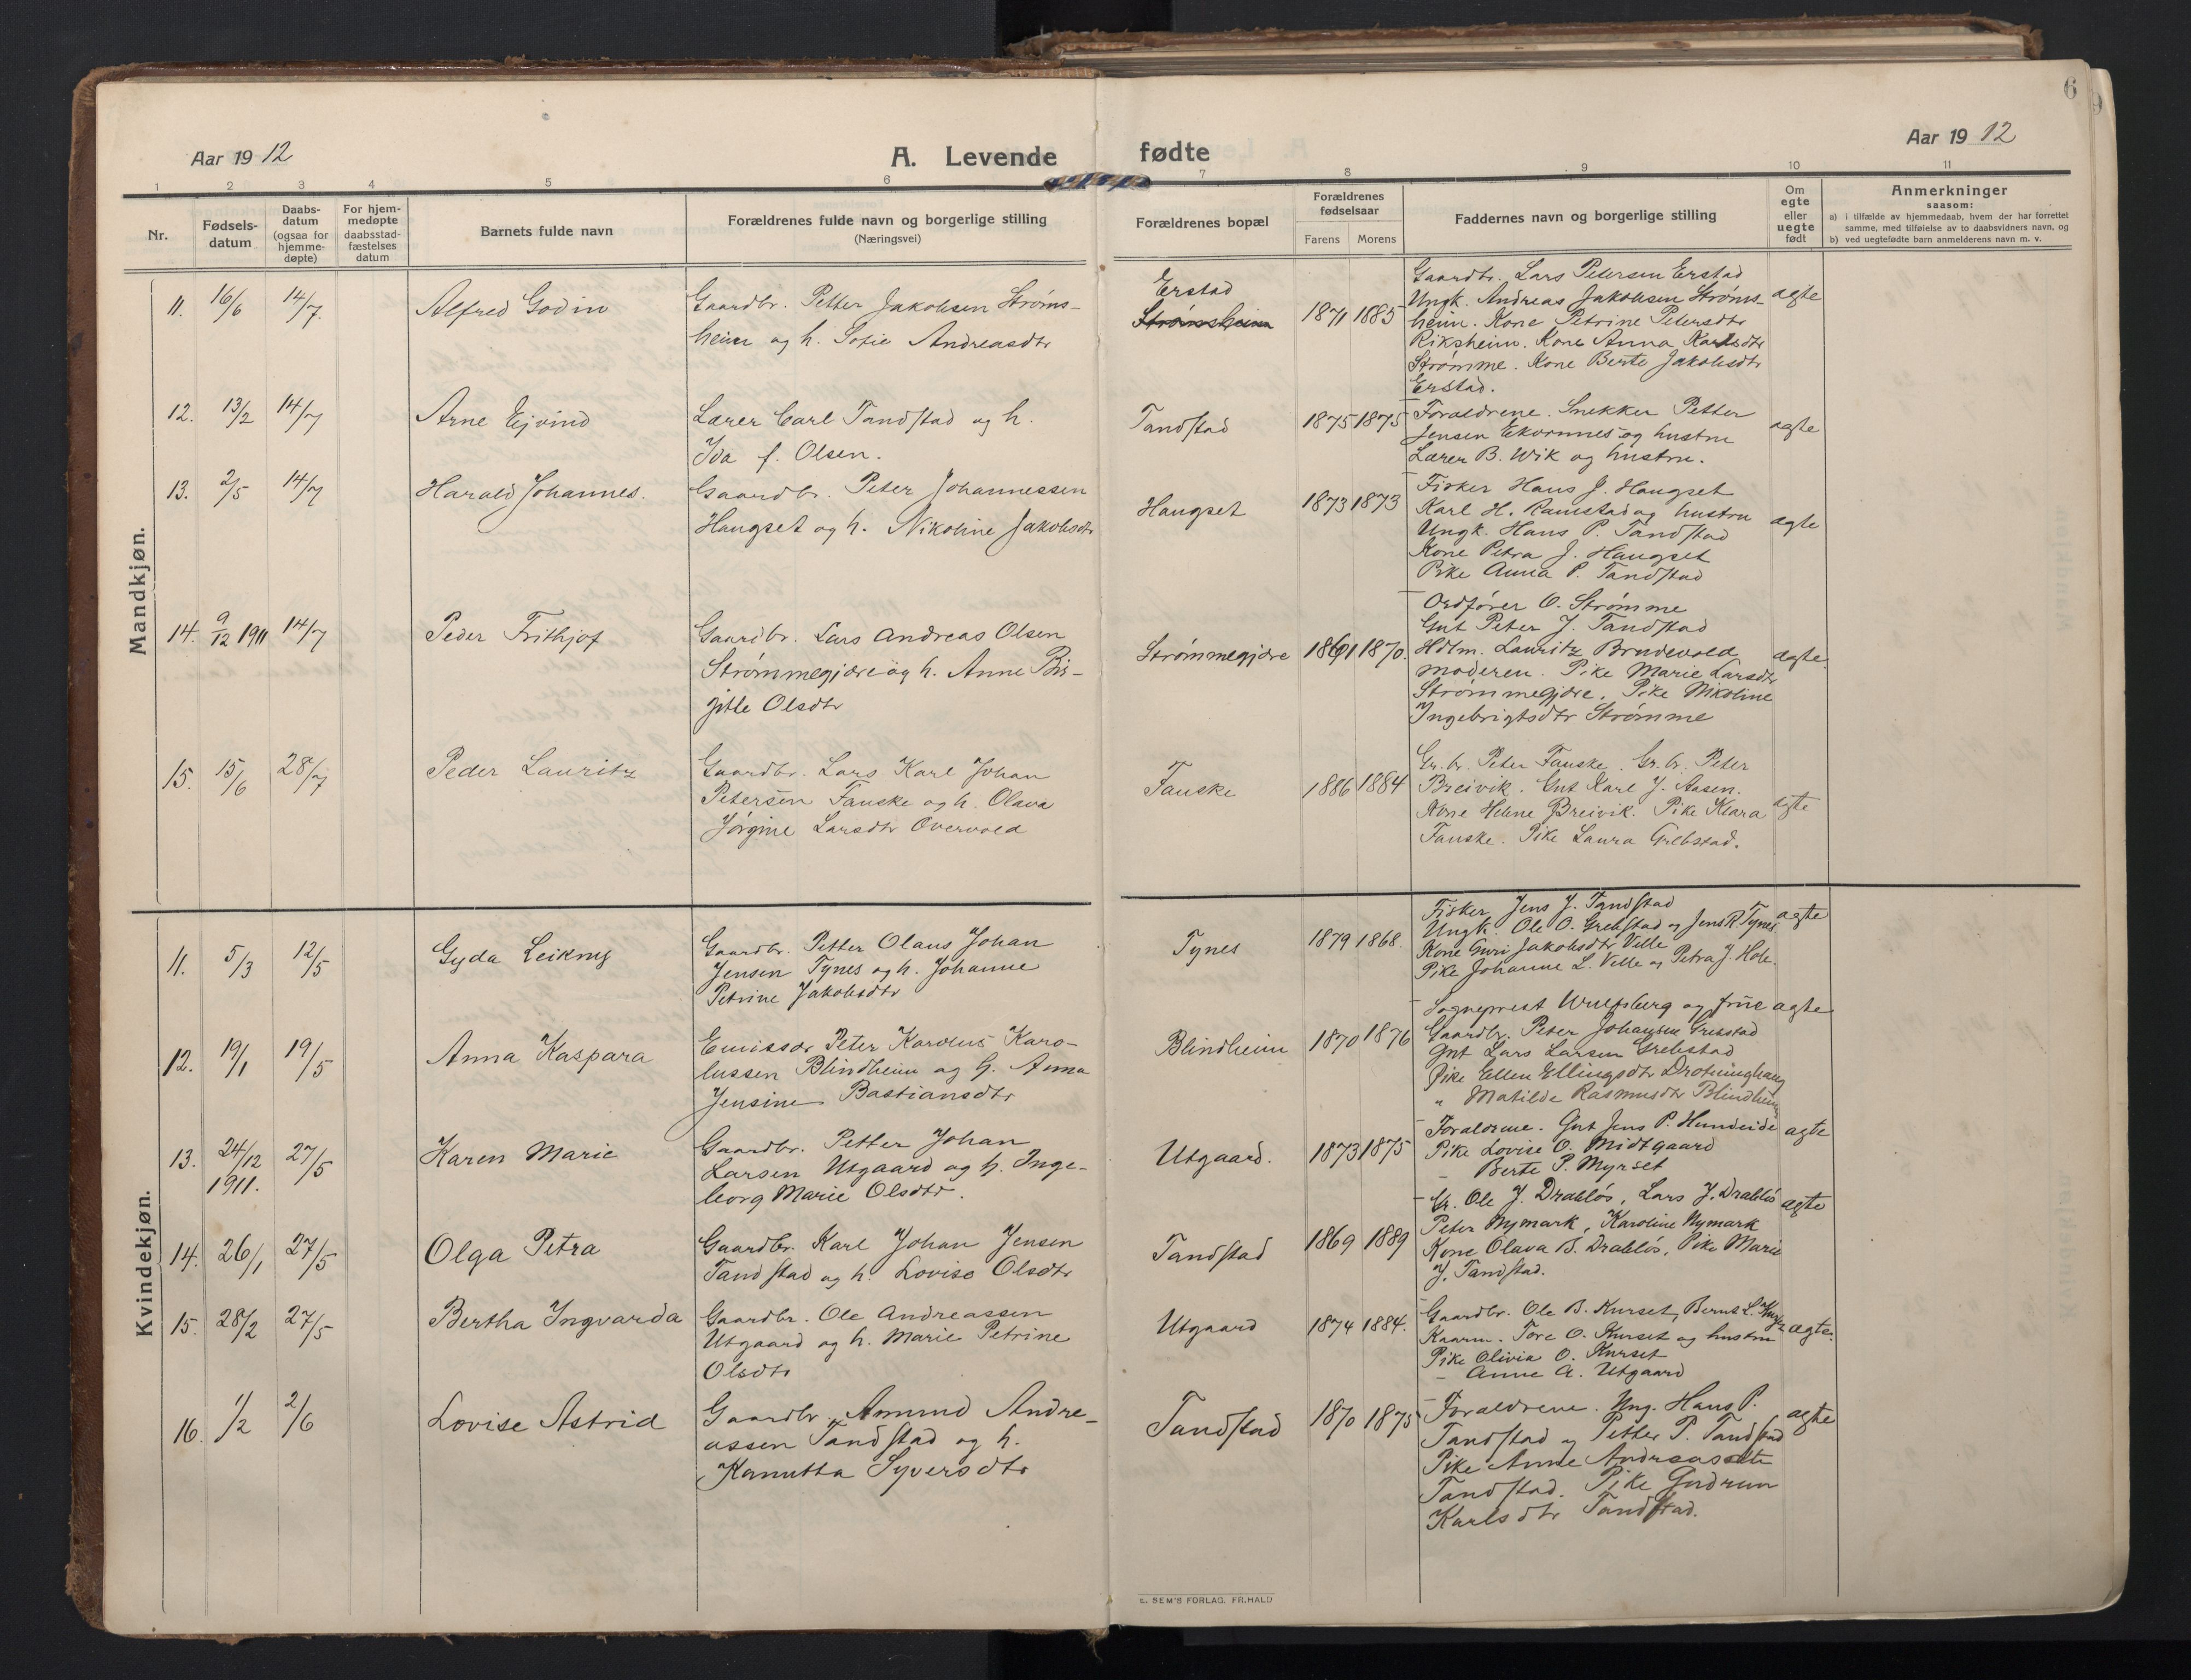 6
Aar 1912
A. Levende fødte
Aar 1912
1 2 3 4 5 6 7 8 9 10 11
Nr.
Fødsels-
datum
Daabs-
datum
(ogsaa for
hjemme-
døpte)
For hjem-
medøpte
daabsstad-
fæstelses
datum
Barnets fulde navn
Forældrenes fulde navn og borgerlige stilling
(Næringsvei)
Forældrenes bopæl
Forældrenes
fødselsaar
Farens Morens
Faddernes navn og borgerlige stilling
Om
egte
eller
uegte
født
Anmerkninger
saasom:
a) i tilfælde av hjemmedaab, hvem der har forrettet
samme, med tilføielse av to daabsvidners navn, og
b) ved uegtefødte barn anmelderens navn m. v.
Mandkjøn.
11. 16/6 14/7. Alfred Godin
Gaardbr. Petter Jakobsen Strøms-
heim og h. Sofie Andreasdtr
Erstad
Strømsheim
1871 1885
Gaardbr. Lars Petersen Erstad
Ungk. Andreas Jakobsen Strøms-
heim. Kone Petrine Petersdtr
Riksheim. Kone Anna Karlsdtr
Strømme. Kone Berte Jakobsdtr
Erstad.
ægte
12. 13/2 14/7 Arne Ejvind
Lærer Carl Tandstad og h.
Ida f. Olsen.
Tandstad
1875 1875
Forældrene. Snekker Petter
Jensen Ekornnes og hustru
Lærer B. Wik og hustru.
ægte
13. 2/5 14/7 Harald Johannes.
Gaardbr. Peter Johannessen
Haugset og h. Nikoline Jakobsdtr
Haugset
1873 1873
Fisker Hans J. Haugset
Karl H. Ramstad og hustru
Ungk. Hans P. Tandstad
Kone Petra J. Haugset
Pike Anna P. Tandstad
ægte
14. 9/12 1911 14/7 Peder Frithjof
Gaardbr. Lars Andreas Olsen
Strømmegjære og h. Anne Bir-
gitte Olsdtr
Strømmegjære
1861 1870.
Ordfører O. Strømme
Gut Peter J. Tandstad
Hdlm. Lauritz Brudevold
Moderen. Pike Marie Larsdtr
Strømmegjære. Pike Nikoline
Ingebrigtsdtr Strømme
ægte.
15. 15/6 28/7 Peder Lauritz
Gaardbr. Lars Karl Johan
Petersen Fauske og h. Olava
Jørgine Larsdtr Overvold
Fauske
1886 1884
Gr. br. Peter Fauske. Gr. br. Peter
Breivik. Gut Karl J. Aasen.
Kone Helene Breivik. Pike Klara
Fauske. Pike Laura Grebstad.
ægte
Kvindekjøn.
11. 5/3 12/5 Gyda Leikny
Gaardbr. Petter Olaus Johan
Jensen Tynes og h. Johanne
Petrine Jakobsdtr
Tynes
1879 1868.
Fisker Jens J. Tandstad
Ungk. Ole O. Grebstad og Jens R. Tynes
Kone Guri Jakobsdtr Velle
Pike Johanne L. Velle og Petra J. Hole.
ægte
12. 19/1 19/5 Anna Kaspara
Emissær Peter Karolus Karo-
lussen Blindheim og h. Anna
Jensine Bastiansdtr
Blindheim
1870 1876
Sogneprest Wulfsberg og frue
Gaardbr. Peter Johansen Grebstad
Gut Lars Larsen Grebstad
Pike Ellen Ellingsdtr Drotninghaug
" Matilde Rasmusdtr Blindheim
ægte
13. 24/12 1911. 27/5 Karen Marie
Gaardbr. Petter Johan
Larsen Utgaard og h. Inge-
borg Marie Olsdtr.
Utgaard.
1873 1875
Forældrene. Gut Jens P. Hundeide
Pike Lovise O. Midtgaard
- Berte P. Myrset
ægte
14. 26/1 27/5 Olga Petra
Gaardbr. Karl Johan Jensen
Tandstad og h. Lovise Olsdtr
Tandstad
1869 1889
Gr. Ole J. Drabløs, Lars J. Drabløs
Peter Nymark, Karoline Nymark
Kone Olava B. Drabløs, Pike Marie
J. Tandstad.
ægte
15. 28/2 27/5 Bertha Ingvarda
Gaardbr. Ole Andreassen
Utgaard og h. Marie Petrine
Olsdtr
Utgaard
1874 1884.
Gaardbr. Ole B. Kurset, Bernt L. Kurset
Kaarm. Tore O. Kurset og hustru
Pike Olivia O. Kurset
- Anne A. Utgaard
ægte.
16. 1/2 2/6 Lovise Astrid
Gaardbr. Amund Andre-
assen Tandstad og h.
Kanutta Syversdtr
Tandstad
1870 1875
Forældrene. Ung. Hans P.
Tandstad og Petter P. Tandstad
Pike Anne Andreasdtr
Tandstad. Pike Gudrun
Karlsdtr Tandstad.
ægte
E. SEM'S FORLAG, FR.HALD